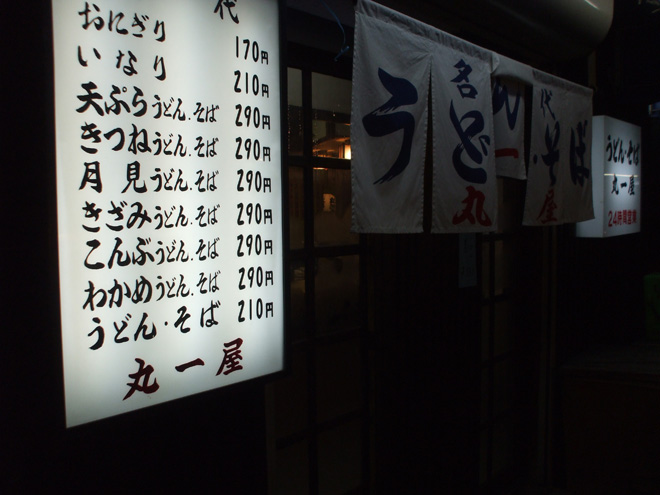 代
おにぎり 170円
いなり 210円
天ぷらうどん.そば 290円
きつねうどん.そば 290円
月見うどん.そば 290円
きざみうどん.そば 290円
こんぶうどん.そば 290円
わかめうどん.そば 290円
うどん・そば 210円
丸一屋
名代
うどん・そば
丸一屋
うどん・そば
丸一屋
24時間営業